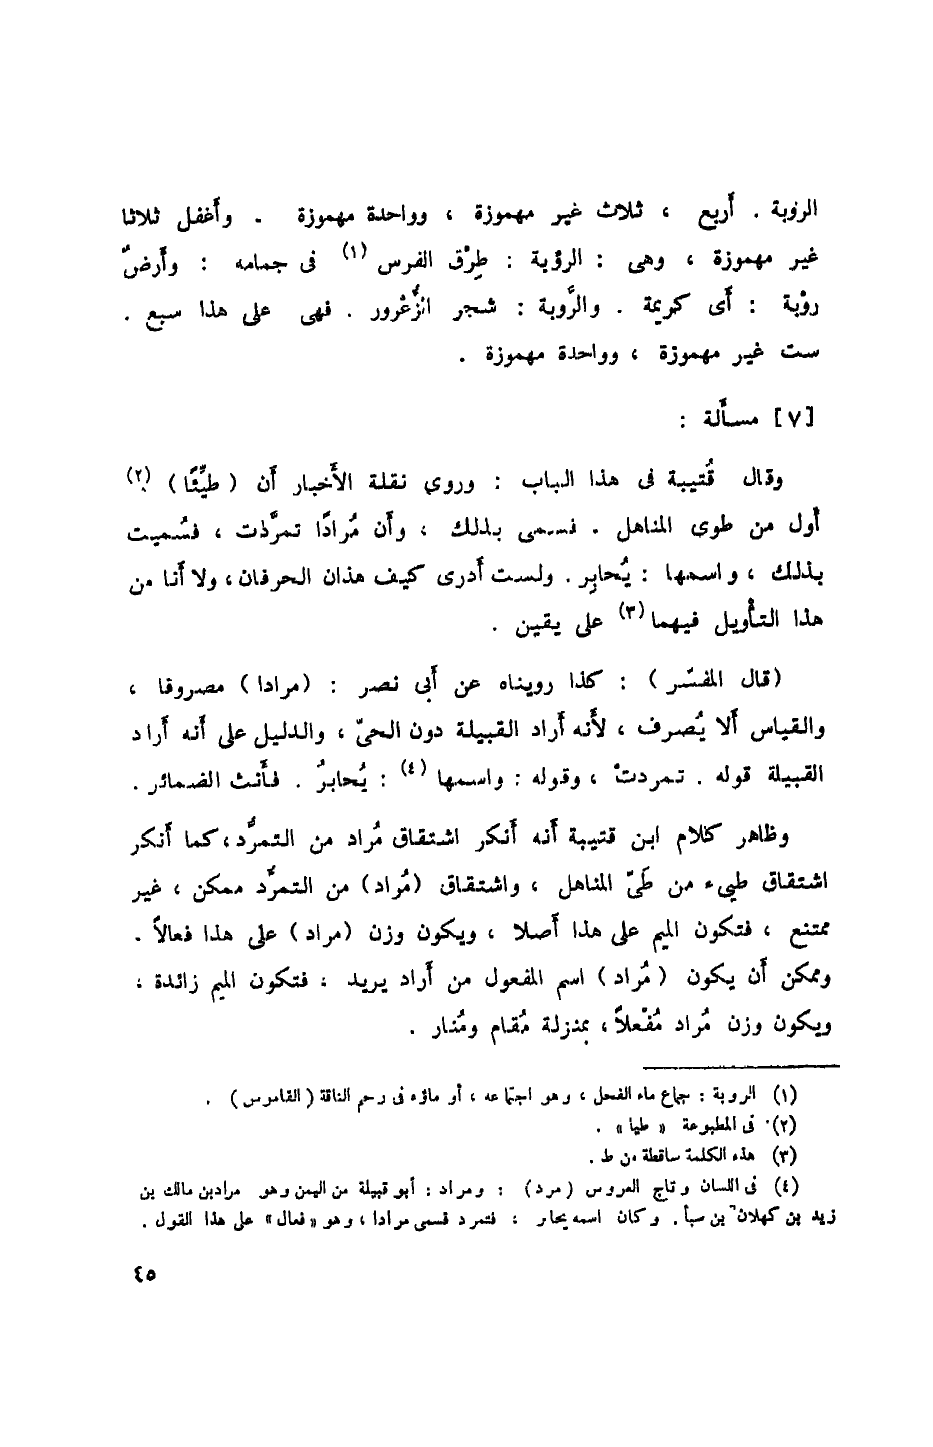 الرؤبة . أَربع ، ثلاث غير مهموزة ، وواحدة مهموزة . وأَغفل ثلاثا
غير مهموزة ، وهى : الروبة : طِرْق الفرس (١) فى جمامه : وأَرضٌ
روْبة : أَى كريمة . والرَّوبة : شجر الزُّعْرور . فهى على هذا سبع .
ست غير مهموزة ، وواحدة مهموزة .
[٧] مسأَلة :
وقال قُتيبة فى هذا الباب : وروى نقلة الأَخبار أَن ( طيِّئًا ) (٢)
أَول من طوى المناهل . فسمى بذلك ، وأَن مُرادًا تمرَّدت ، فسُميت
بذلك ، واسمها : يُحابِر . ولست أَدرى كيف هذان الحرفان ، ولا أنا من
هذا التأْويل فيهما (٣) على يقين .
(قال المفسّر ) : كذا رويناه عن أَبى نصر : (مرادا) مصروفا ،
والقياس أَلا يُصرف ، لأَنه أَراد القبيلة دون الحىّ ، والدليل على أَنه أَراد
القبيلة قوله . تمردتْ ، وقوله : واسمها (٤) : يُحابرُ . فأَنث الضمائر .
وظاهر كلام ابن قتيبة أَنه أَنكر اشتقاق مُراد من التمرُّد ، كما أَنكر
اشتقاق طيىء من طَىّ المناهل ، واشتقاق (مُراد) من التمرُّد ممكن ، غير
ممتنع ، فتكون الميم على هذا أَصلا ، ويكون وزن (مراد) على هذا فعالاً .
وممكن أَن يكون (مُراد) اسم المفعول من أَراد يريد ، فتكون الميم زائدة ،
ويكون وزن مُراد مُفْعلاً ، بمنزلة مُقام ومُنار .
(١) الروبة : جماع ماء الفحل ، وهو اجتماعه ، أو ماؤه فى رحم الناقة ( القاموس ) .
(٢) فى المطبوعة « طيا » .
(٣) هذه الكلمة ساقطة من ط .
(٤) فى اللسان وتاج العروس (مرد) : ومراد : أبو قبيلة من اليمن وهو مرادبن مالك بن
زيد بن كهلان بن سبأ . وكان اسمه يحابر : فتمرد فسمى مرادا ، وهو «فعال» على هذا القول .
٤٥